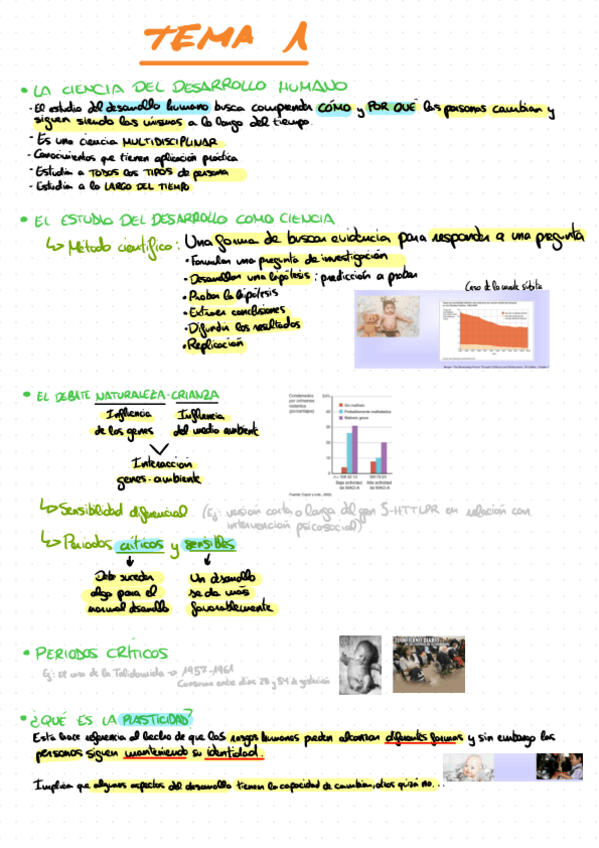 TEMA 1
• LA CIENCIA DEL DESARROLLO HUMANO
- El estudio del desarrollo humano busca comprender CÓMO y POR QUÉ las personas cambian y
siguen siendo las mismas a lo largo del tiempo.
- Es una ciencia MULTIDISCIPLINAR
- Conocimientos que tienen aplicación práctica
- Estudia a TODOS los TIPOS de persona
- Estudia a lo LARGO DEL TIEMPO
• EL ESTUDIO DEL DESARROLLO COMO CIENCIA
↳ Método científico: Una forma de buscar evidencia para responder a una pregunta
• Formular una pregunta de investigación
• Desarrollar una hipótesis; predicción a probar
• Probar la hipótesis
• Extraer conclusiones
• Difundir los resultados
• Replicación
Caso de la muerte súbita
• EL DEBATE NATURALEZA-CRIANZA
Influencia de los genes
Influencia del medio ambiente
Interacción
genes-ambiente
Condenados
por crímenes
violentos
(porcentajes)
Sin maltrato
Probablemente maltratados
Maltrato grave
Baja actividad
de MAO-A
Alta actividad
de MAO-A
↳ Sensibilidad diferencial (Ej: versión corta o larga del gen 5-HTTLPR en relación con
intervención psicosocial)
↳ Periodos críticos y sensibles
Debe suceder
algo para el
normal desarrollo
Un desarrollo
se da más
favorablemente
• PERIODOS CRÍTICOS
Ej: el uso de la Talidomida → 1957-1961
Consumo entre días 28 y 54 de gestación
• ¿QUÉ ES LA PLASTICIDAD?
Esta hace referencia al hecho de que los rasgos humanos pueden alcanzar diferentes formas y sin embargo las
personas siguen manteniendo su identidad.
Implica que algunos aspectos del desarrollo tienen la capacidad de cambiar, otros quizá no...